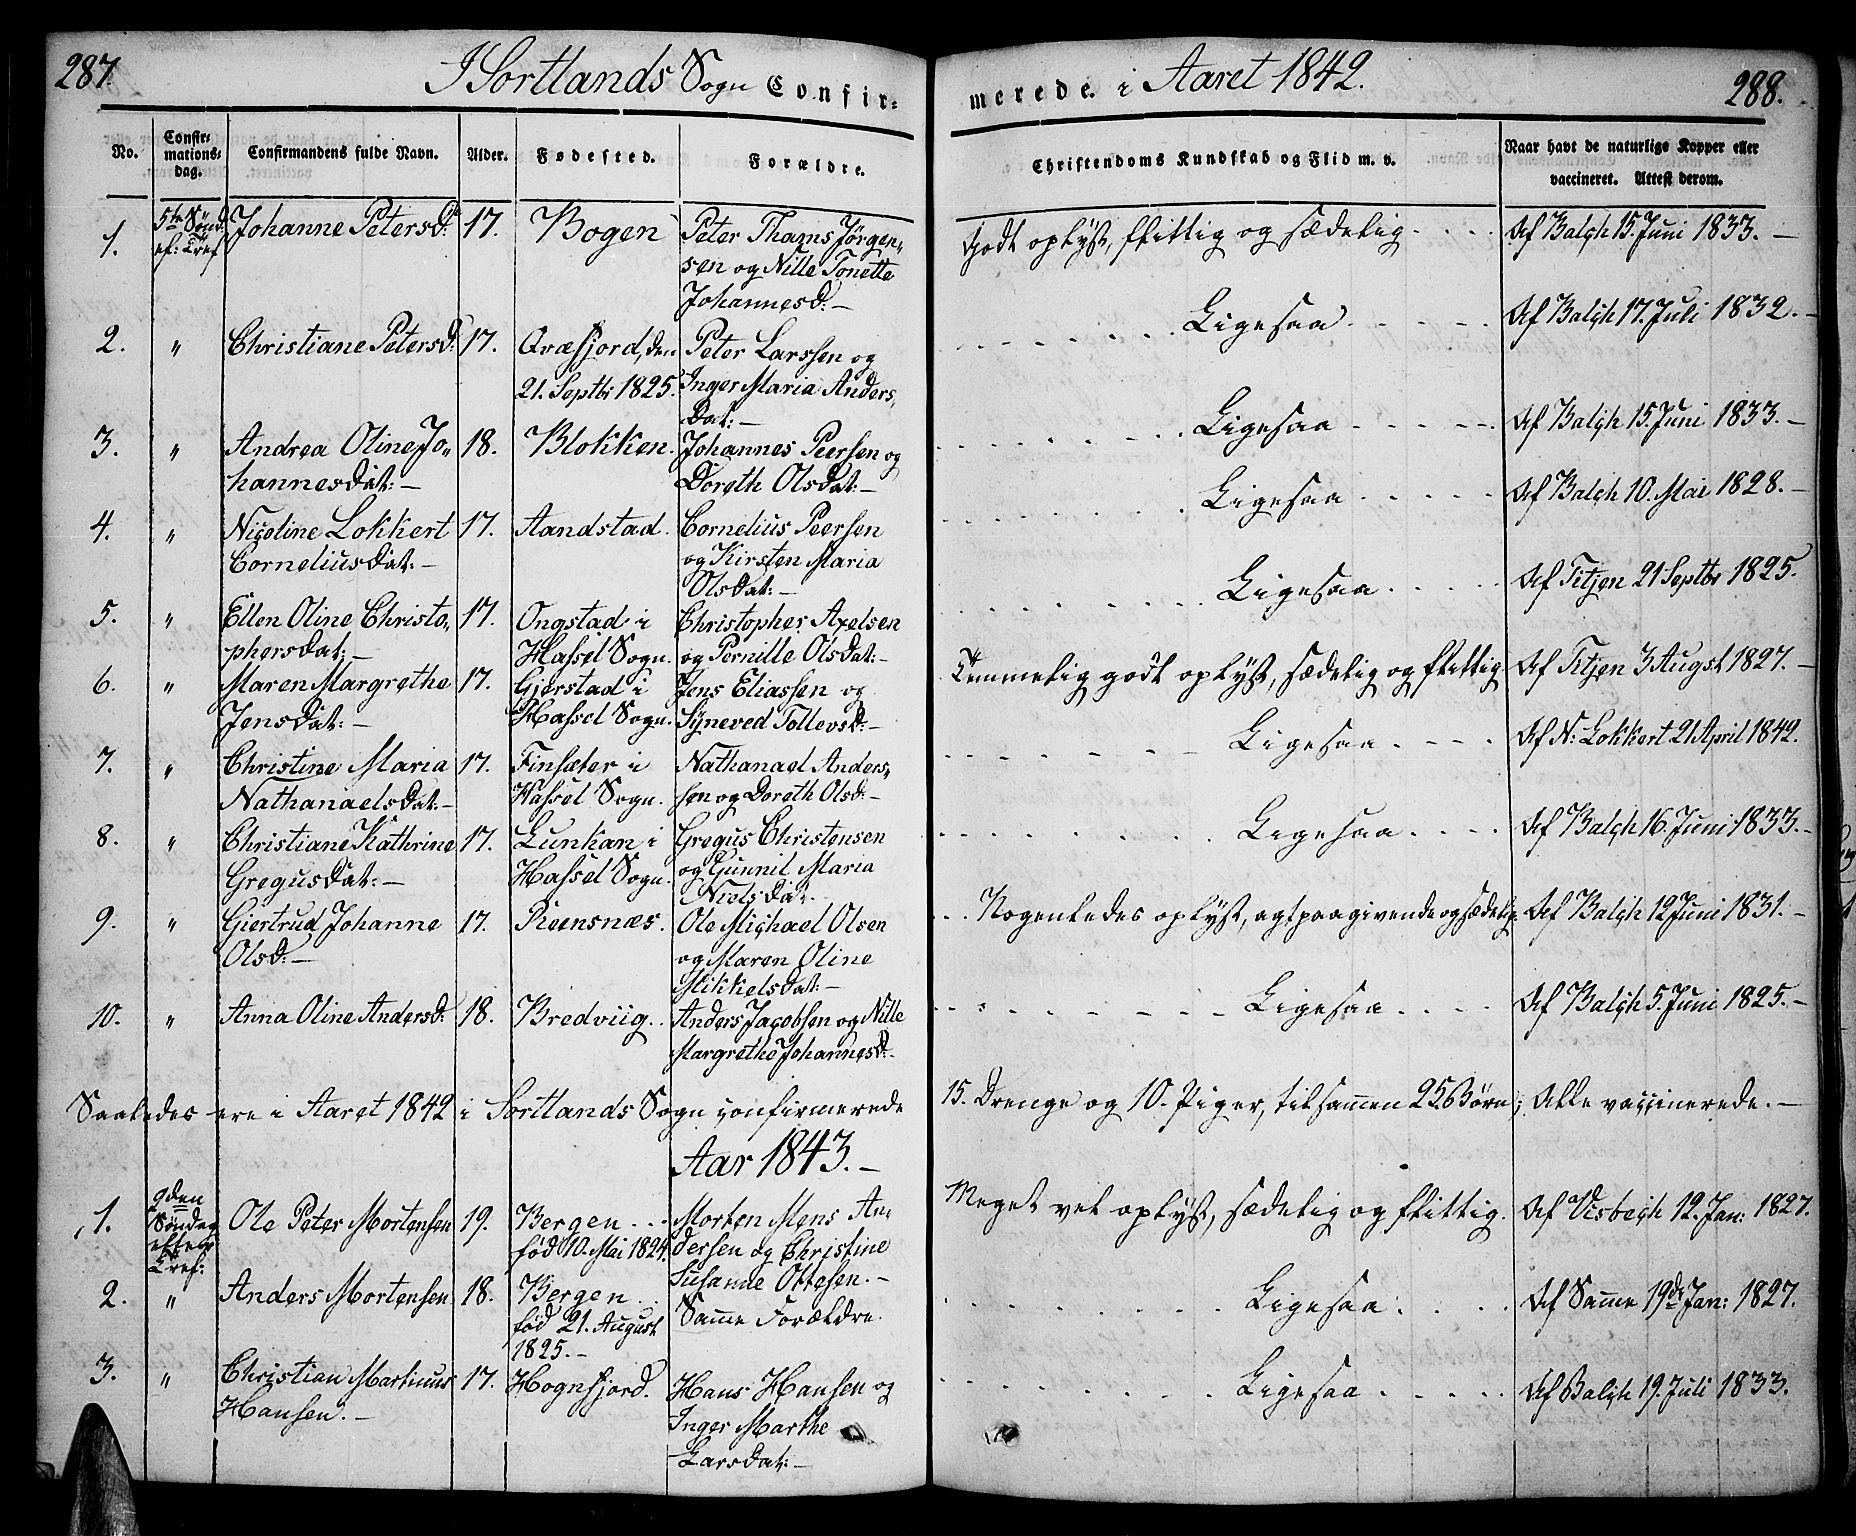 287.
I Sortlands Sogn Confir-
No.
Confir-
mations-
dag.
Confirmandens fulde Navn.
Alder.
Fødested.
Forældre.
1.
5te Sønd.
ef: Tref
Johanne Petersd:
17.
Bogen
Peter Thams Jørgen-
sen og Nille Tonette
Johannesd:—
2.
"
Christiane Petersd:
17.
Qvæfjord, den
21. Septbr 1825.
Peter Larssen og
Inger Maria Anders
Dat:—
3.
"
Andrea Oline Jo-
hannesdat:—
18.
Blokken.
Johannes Peersen og
Doreth Olsdat:—
4.
"
Nicoline Lokkert
Corneliusdat:—
17.
Aandstad.
Cornelius Peersen
og Kirsten Maria
Olsdat:—
5.
"
Ellen Oline Christo-
phersdat:—
17.
Ongstad i
Hassel Sogn.
Christopher Axelsen
og Pernille Olsdat:—
6.
"
Maren Margrethe
Jensdat:—
17.
Gjerstad i
Hassel Sogn.
Jens Eliassen og
Syneved Tollevsd:—
7.
"
Christine Maria
Nathanaelsdat:—
17.
Finsæter i
Hassel Sogn.
Nathanael Anders-
sen og Doreth Olsd:—
8.
"
Christiane Kathrine
Gregusdat:—
17.
Lunkan i
Hassel Sogn.
Gregus Christensen
og Gunnil Maria
Nielsdat.
9.
"
Giertrud Johanne
Olsd:—
17.
Reensnæs.
Ole Michael Olsen
og Maren Oline
Mikkelsdat:—
10.
"
Anna Oline Andersd:
18.
Bredviig.
Anders Jacobsen og Nille
Margrethe Johannesd:
Saaledes ere i Aaret 1842 i Sortlands Sogn confirmerede
Aar 1843.—
1.
9den
Søndag
efter
Tref:
Ole Peter Mortensen
19.
Bergen . . .
fød 10. Mai 1824.
Morten Mons An-
dersen og Christine
Susanne Ottesen.—
2.
"
Anders Mortensen
18.
Bergen . .
fød 21. August
1825.—
Samme Forældre.
3.
"
Christian Martinus
Hansen.—
17.
Hognfjord.
Hans Hansen og
Inger Marthe
Larsdat:—
merede. i Aaret 1842.
288.
Christendoms Kundskab og Flid m. v.
Naar havt de naturlige Kopper eller
vaccineret. Attest derom.
Godt oplyst, flittig og sædelig. . . .
Af Balch 15. Juni 1833.—
Ligesaa
Af Balch 17. Juli 1832.—
Ligesaa
Af Balch 15. Juni 1833.—
Ligesaa
Af Balch 10. Mai 1828.—
Ligesaa
Af Titjen 21 Septbr 1825.
Temmelig godt oplyst, sædelig og flittig
Af Titjen 3 Augst 1827.—
Ligesaa
Af N: Lokkert 21 April 1842.
Ligesaa
Af Balch 16. Juni 1833.—
Nogenledes oplyst, agtpaagivende og sædelig.
Af Balch 12 Juni 1831.—
Ligesaa
Af Balch 5. Juni 1825.—
15. Drenge og 10. Piger, tilsamen 25 Børn; Alle vaccinerede.—
Meget vel oplyst, sædelig og flittig.
Af Visbech 12. Jan: 1827.
Ligesaa
Af Samme 19de Jan: 1827.
Ligesaa
Af Balch 19. Juli 1833.